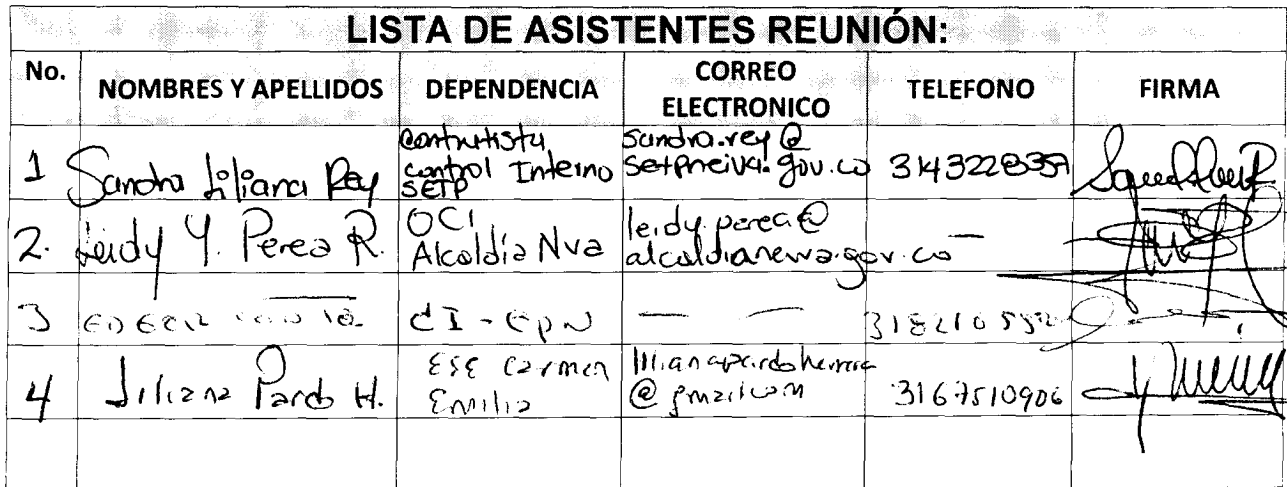 LISTA DE ASISTENTES REUNIÓN:
No. NOMBRES Y APELLIDOS DEPENDENCIA CORREO ELECTRONICO TELEFONO FIRMA
1 Sandra Liliana Rey contratista control Interno SETP sandra.rey@ setpneiva.gov.co
2. Leidy Y. Perea R. OCI Alcaldía Nva leidy.perea@ alcaldianeiva.gov.co —
3 CI - EPN — —
4 Liliana Pardo H. ESE Carmen Emilia lilianapardoherrera @gmail.com 3167510906